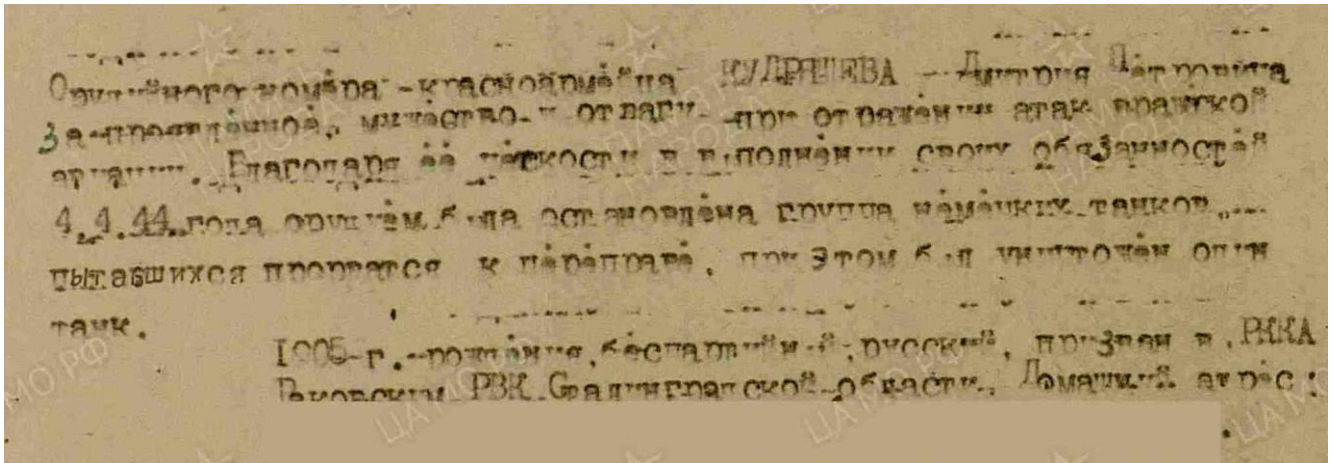 Орудийного номера -красноармейца КУДРЯШЕВА - Дмитрия Петровича
За-проявленное, мужество- и отвагу- при отражении атак вражеской
авиации. Благодаря её чёткости в выполнении своих обязанностей
4.4.44.года орудием была остановлена группа немецких танков,
пытавшихся прорватся к переправе, при этом был уничтожен один
танк.
1905-г.-рождения,беспартийный,русский, призван в РККА
РВК. Сталинградской-области. Домашний адрес: